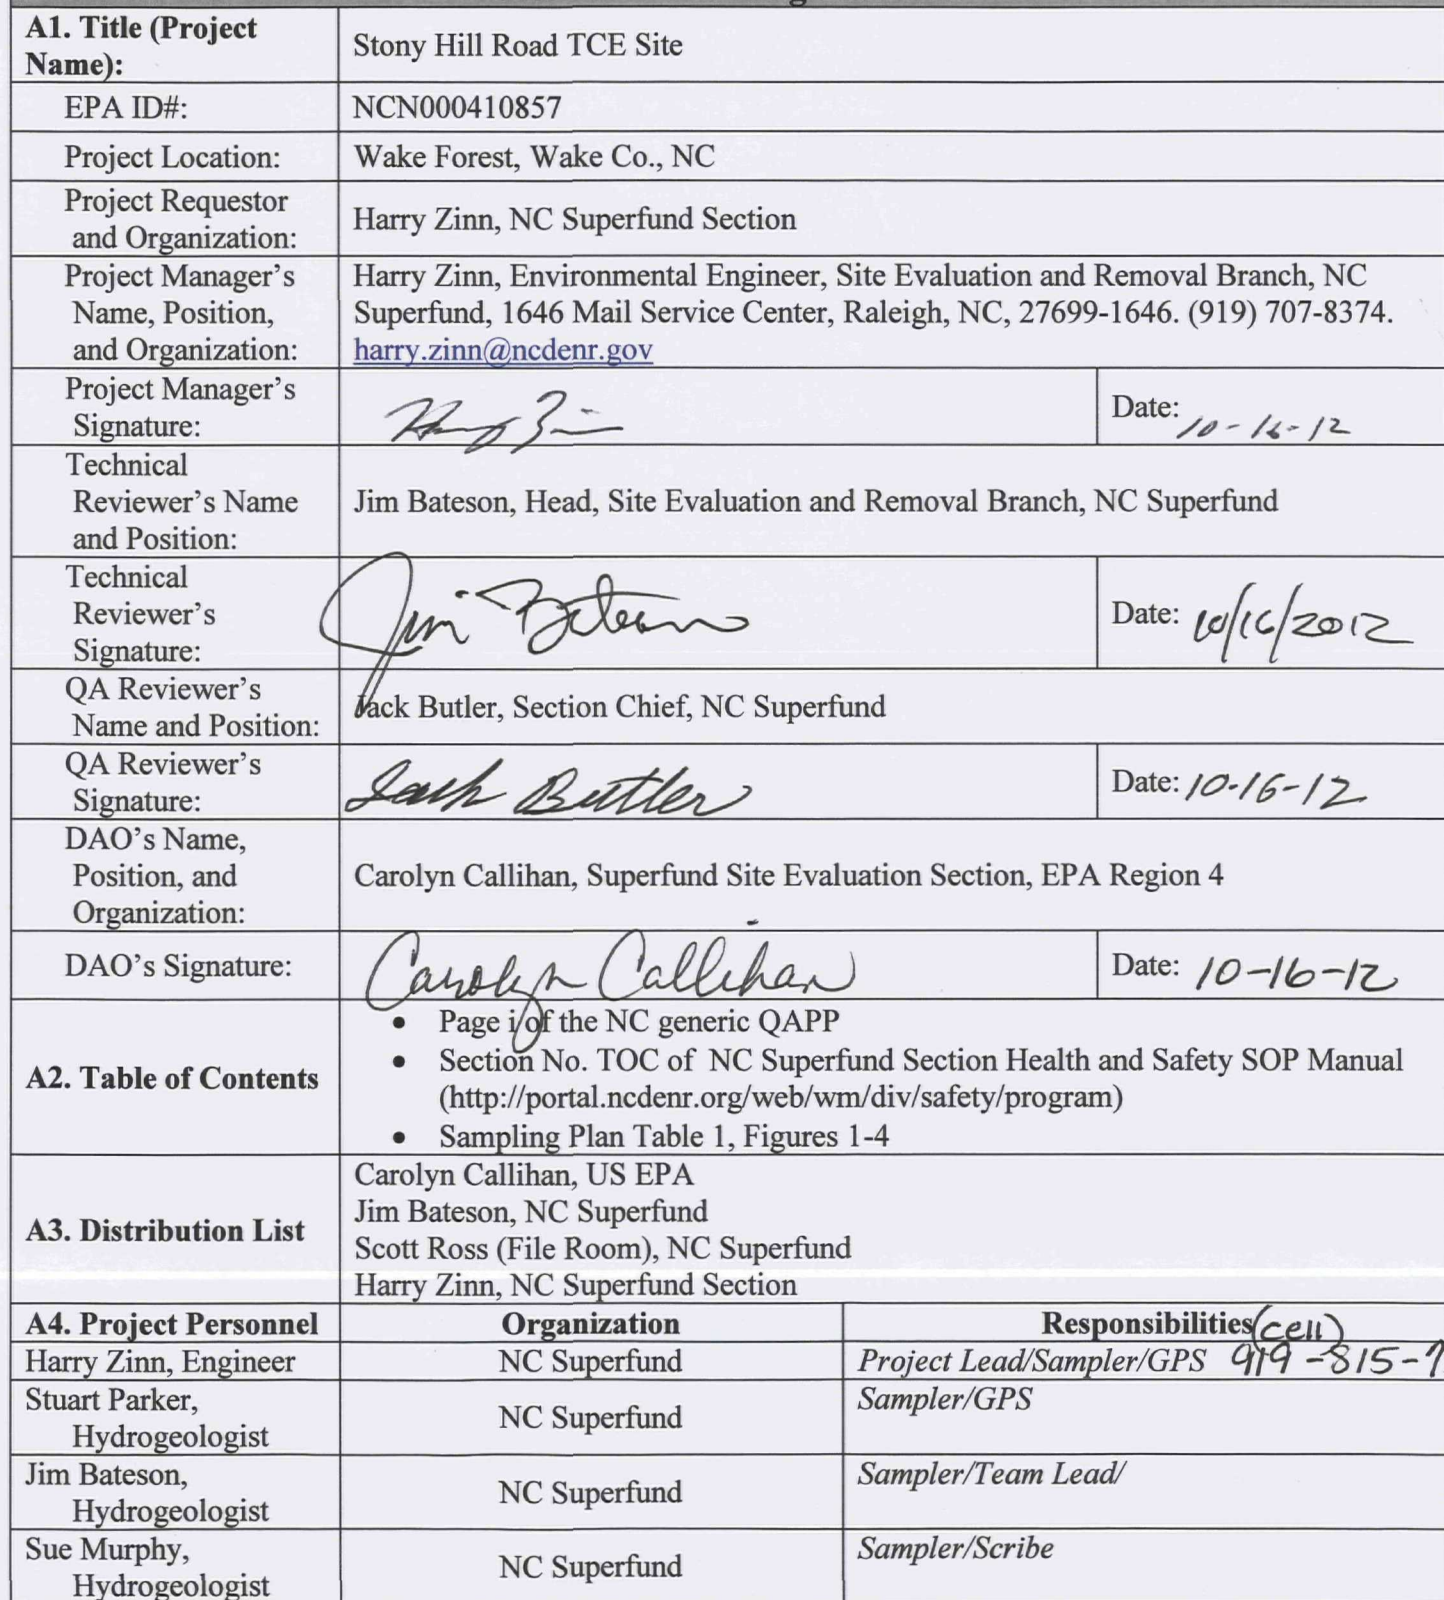 A1. Title (Project
Name):
Stony Hill Road TCE Site
EPA ID#:
NCN000410857
Project Location:
Wake Forest, Wake Co., NC
Project Requestor
and Organization:
Harry Zinn, NC Superfund Section
Project Manager's
Name, Position,
and Organization:
Harry Zinn, Environmental Engineer, Site Evaluation and Removal Branch, NC
Superfund, 1646 Mail Service Center, Raleigh, NC, 27699-1646. (919) 707-8374.
harry.zinn@ncdenr.gov
Project Manager's
Signature:
Date: 10-16-12
Technical
Reviewer's Name
and Position:
Jim Bateson, Head, Site Evaluation and Removal Branch, NC Superfund
Technical
Reviewer's
Signature:
Jim Bateson
Date: 10/16/2012
QA Reviewer's
Name and Position:
Jack Butler, Section Chief, NC Superfund
QA Reviewer's
Signature:
Jack Butler
Date: 10-16-12
DAO's Name,
Position, and
Organization:
Carolyn Callihan, Superfund Site Evaluation Section, EPA Region 4
DAO's Signature:
Carolyn Callihan
Date: 10-16-12
A2. Table of Contents
• Page i of the NC generic QAPP
• Section No. TOC of NC Superfund Section Health and Safety SOP Manual
(http://portal.ncdenr.org/web/wm/div/safety/program)
• Sampling Plan Table 1, Figures 1-4
A3. Distribution List
Carolyn Callihan, US EPA
Jim Bateson, NC Superfund
Scott Ross (File Room), NC Superfund
Harry Zinn, NC Superfund Section
A4. Project Personnel
Organization
Responsibilities (cell)
Harry Zinn, Engineer
NC Superfund
Project Lead/Sampler/GPS 919-815-
Stuart Parker,
Hydrogeologist
NC Superfund
Sampler/GPS
Jim Bateson,
Hydrogeologist
NC Superfund
Sampler/Team Lead/
Sue Murphy,
Hydrogeologist
NC Superfund
Sampler/Scribe